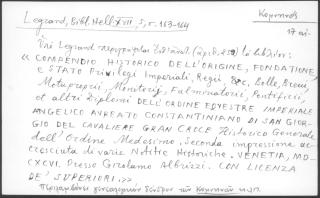 Legrand, Bibl. Hell. XVII, 5, σ. 163-164
Κομνηνός
17 αι.
Ὑπὸ Legrand περιγράφεται
« COMPENDIO HISTORICO DELL'ORIGINE, FONDATIONE
e STATO Privilegi Imperiali, Regii, &c, Bolle, Brevi,
Motuproprii, Monitorij Fulminatorii, Pontificii,
et altri Diplomi DELL'ORDINE EQUESTRE IMPERIALE
ANGELICO AUREATO CONSTANTINIANO DI SAN GIOR-
GIO DEL CAVALIERE GRAN CROCE Historico Generale
dell'Ordine Medesimo. Seconda impressione ac-
cresciuta di varie Notitie Historiche. VENETIA, MD-
CXCVI. Presso Girolamo Albrizzi. CON LICENZA
DE' SUPERIORI.»
Περιλαμβάνει γενεαλογικὸν δένδρον τῶν Κομνηνῶν